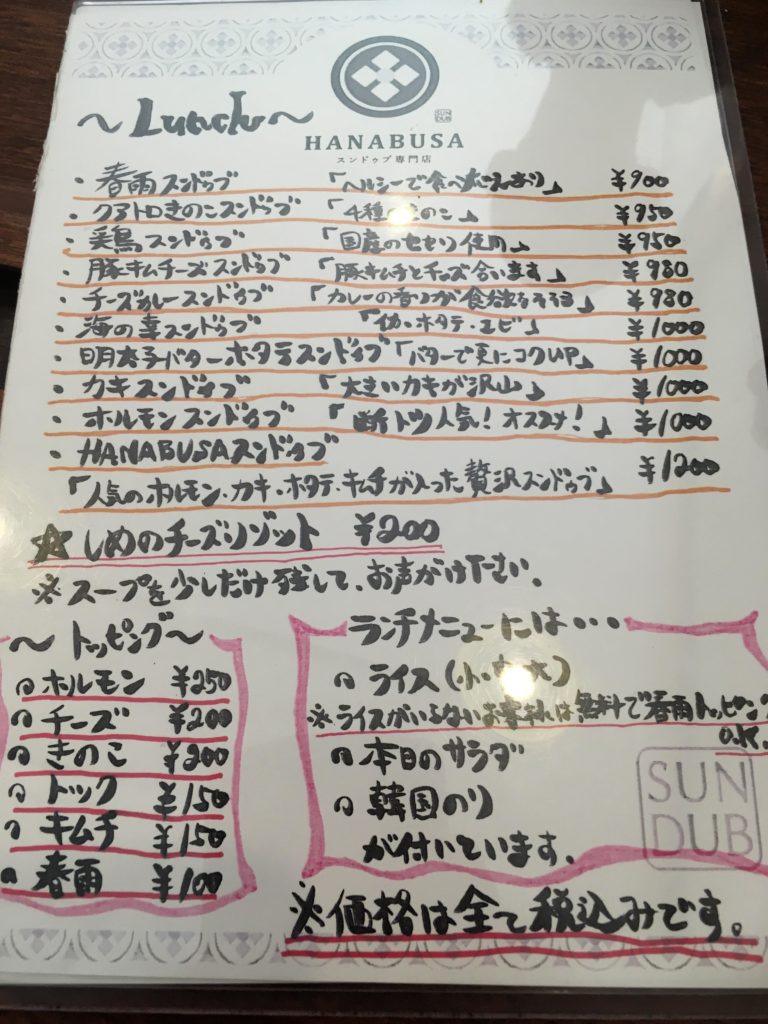 SUN
DUB
~Lunch~
HANABUSA
スンドゥブ専門店
・春雨スンドゥブ 「ヘルシーで食べ応えあり」 ¥900
・クアトロきのこスンドゥブ 「4種のきのこ」 ¥950
・美鶏スンドゥブ 「国産のセセリ使用」 ¥950
・豚キムチーズスンドゥブ 「豚キムチとチーズ合います」 ¥980
・チーズカレースンドゥブ 「カレーの香りが食欲をそそる」 ¥980
・海の幸スンドゥブ 「イカ・ホタテ・エビ」 ¥1000
・明太子バターホタテスンドゥブ 「バターで更にコクUP」 ¥1000
・カキスンドゥブ 「大きいカキが沢山」 ¥1000
・ホルモンスンドゥブ 「断トツ人気!オススメ!」 ¥1000
・HANABUSAスンドゥブ
「人気のホルモン、カキ・ホタテ・キムチが入った贅沢スンドゥブ」 ¥1200
☆しめのチーズリゾット ¥200
※スープを少しだけ残して、お声がけ下さい。
~トッピング~
ホルモン ¥250
チーズ ¥200
きのこ ¥200
トック ¥150
キムチ ¥150
春雨 ¥100
ランチメニューには・・・
ライス(小・中・大)
※ライスがいらないお客様は、無料で春雨トッピング
O.K.
本日のサラダ
韓国のり
が付いています。
SUN
DUB
※価格は全て税込みです。